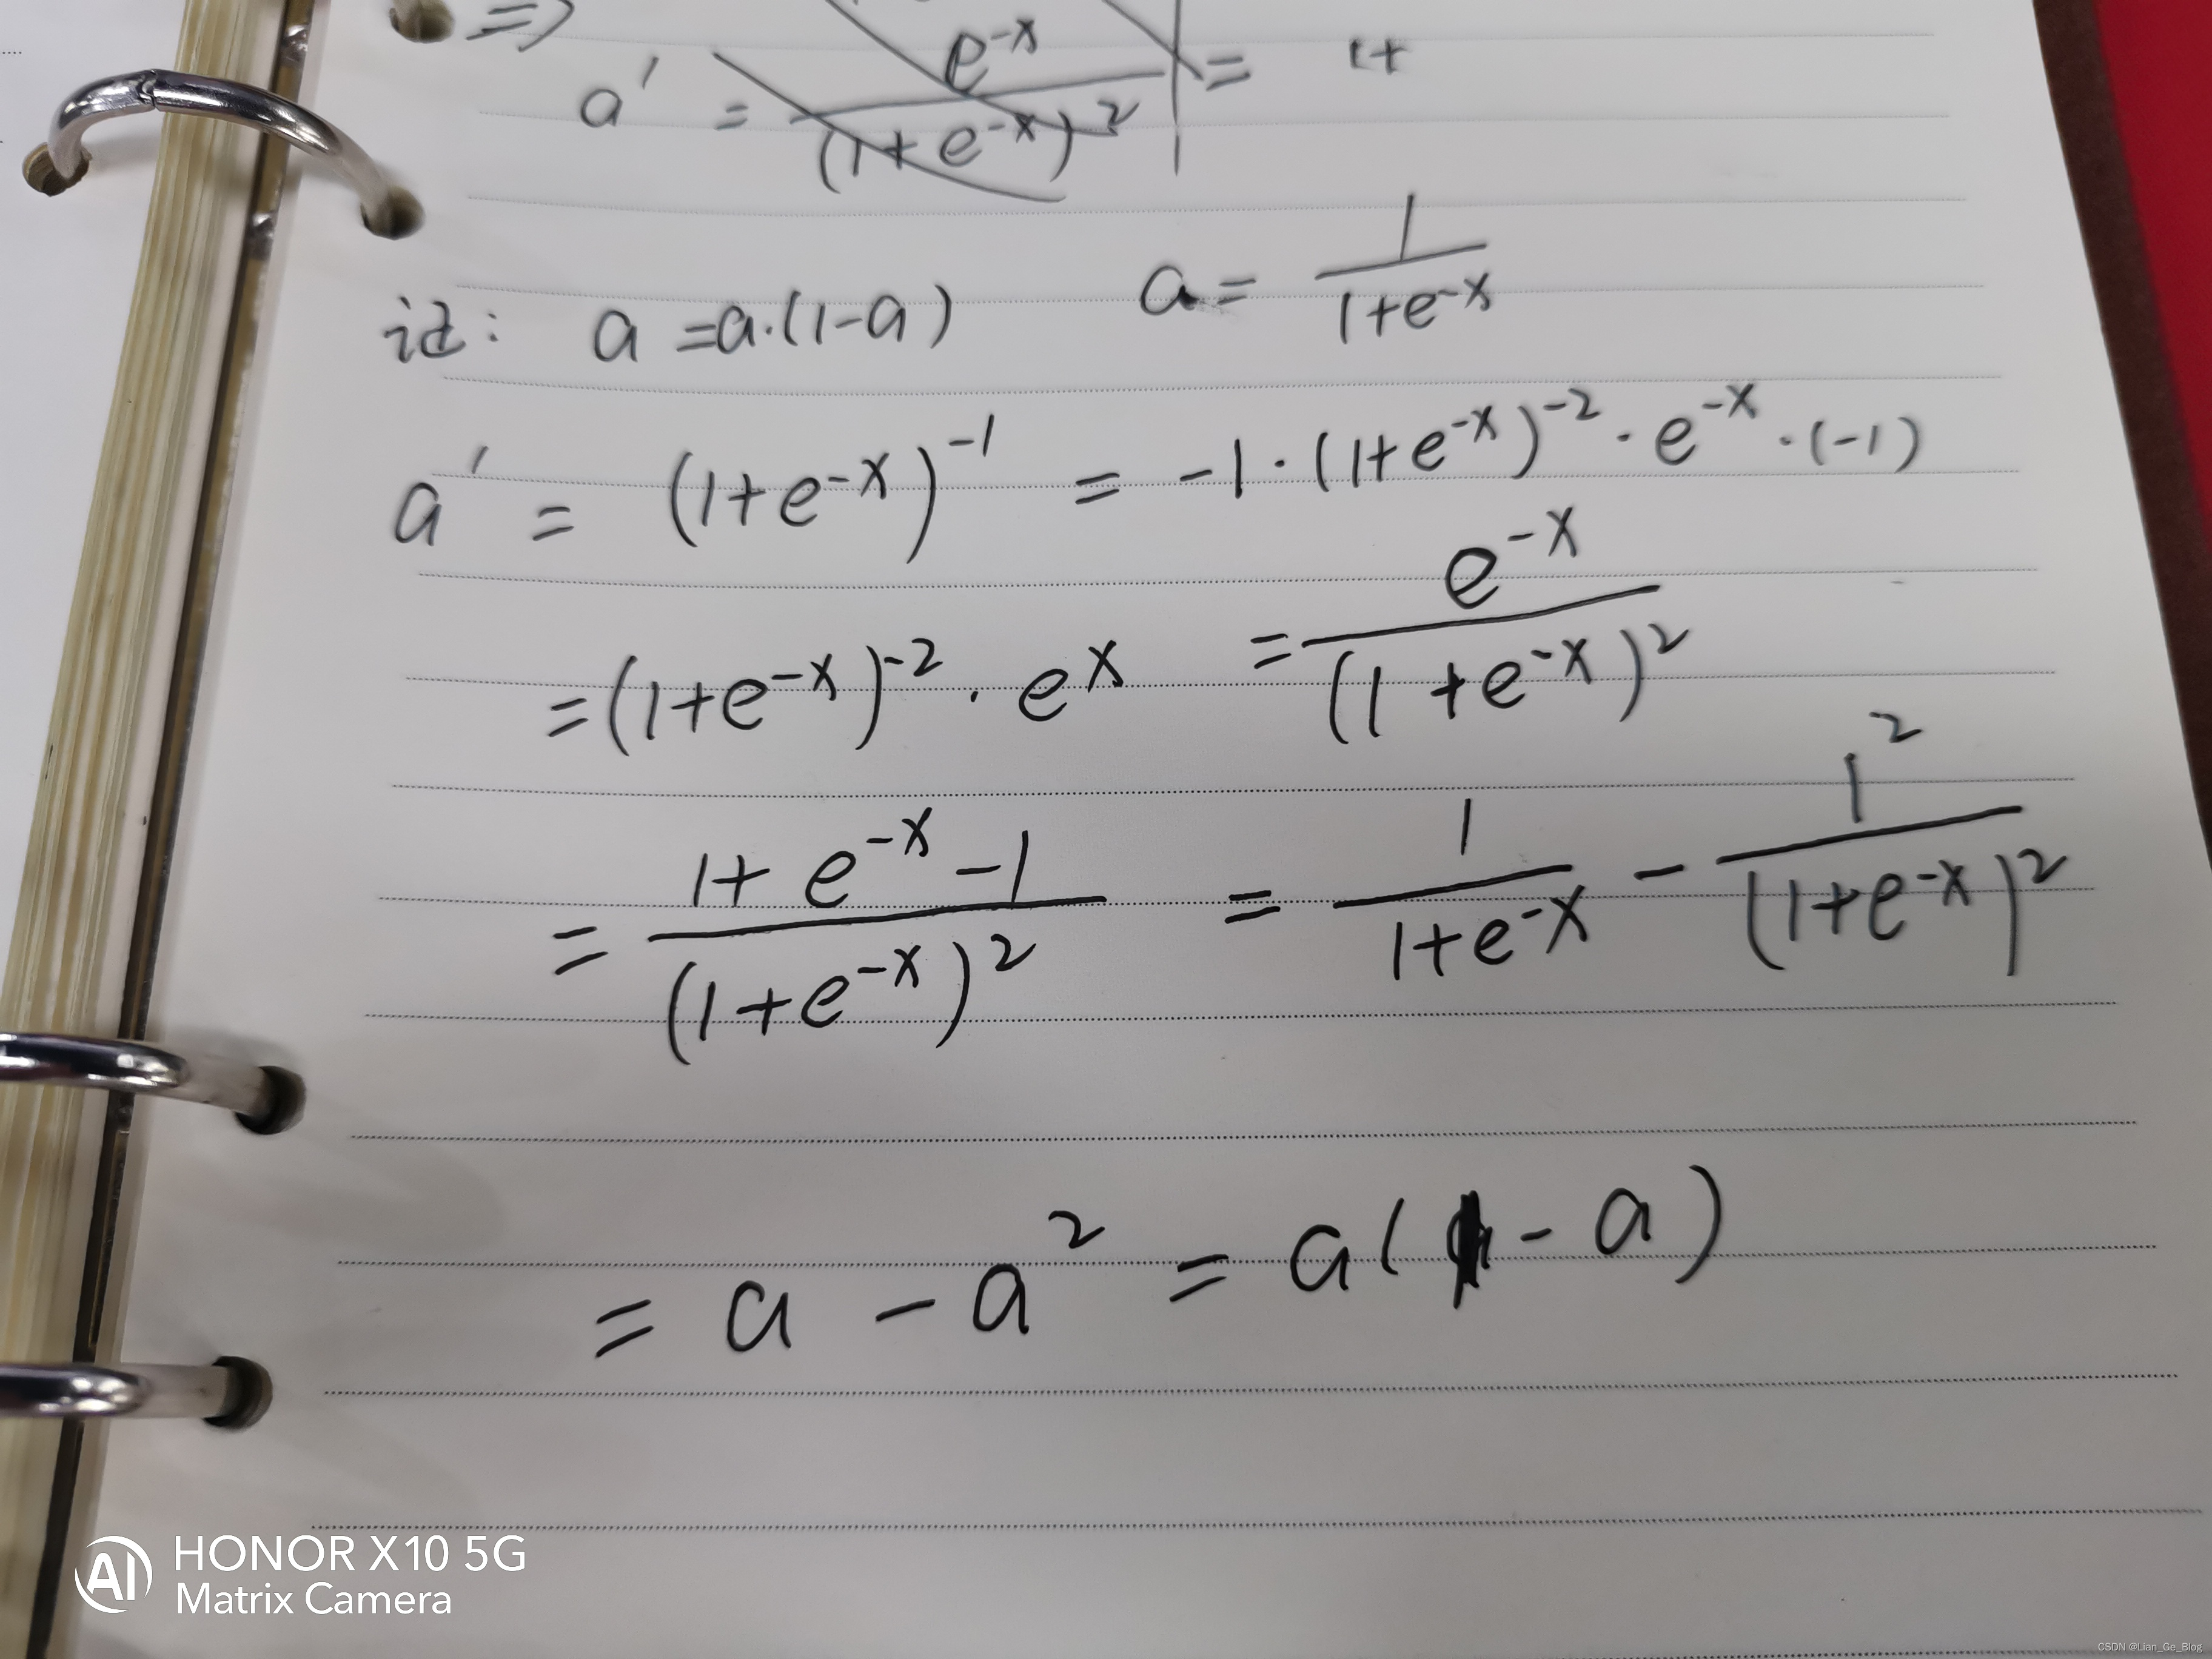 => a' = e^-x / (1+e^-x)^2 = 1+
证: a = a·(1-a)   a = 1 / 1+e^-x
a' = (1+e^-x)^-1 = -1·(1+e^-x)^-2 · e^-x · (-1)
= (1+e^-x)^-2 · e^x = e^-x / (1+e^-x)^2
= 1+e^-x -1 / (1+e^-x)^2 = 1 / 1+e^-x - 1^2 / (1+e^-x)^2
= a - a^2 = a(1-a)
AI HONOR X10 5G
Matrix Camera
CSDN @Lian_Ge_Blog